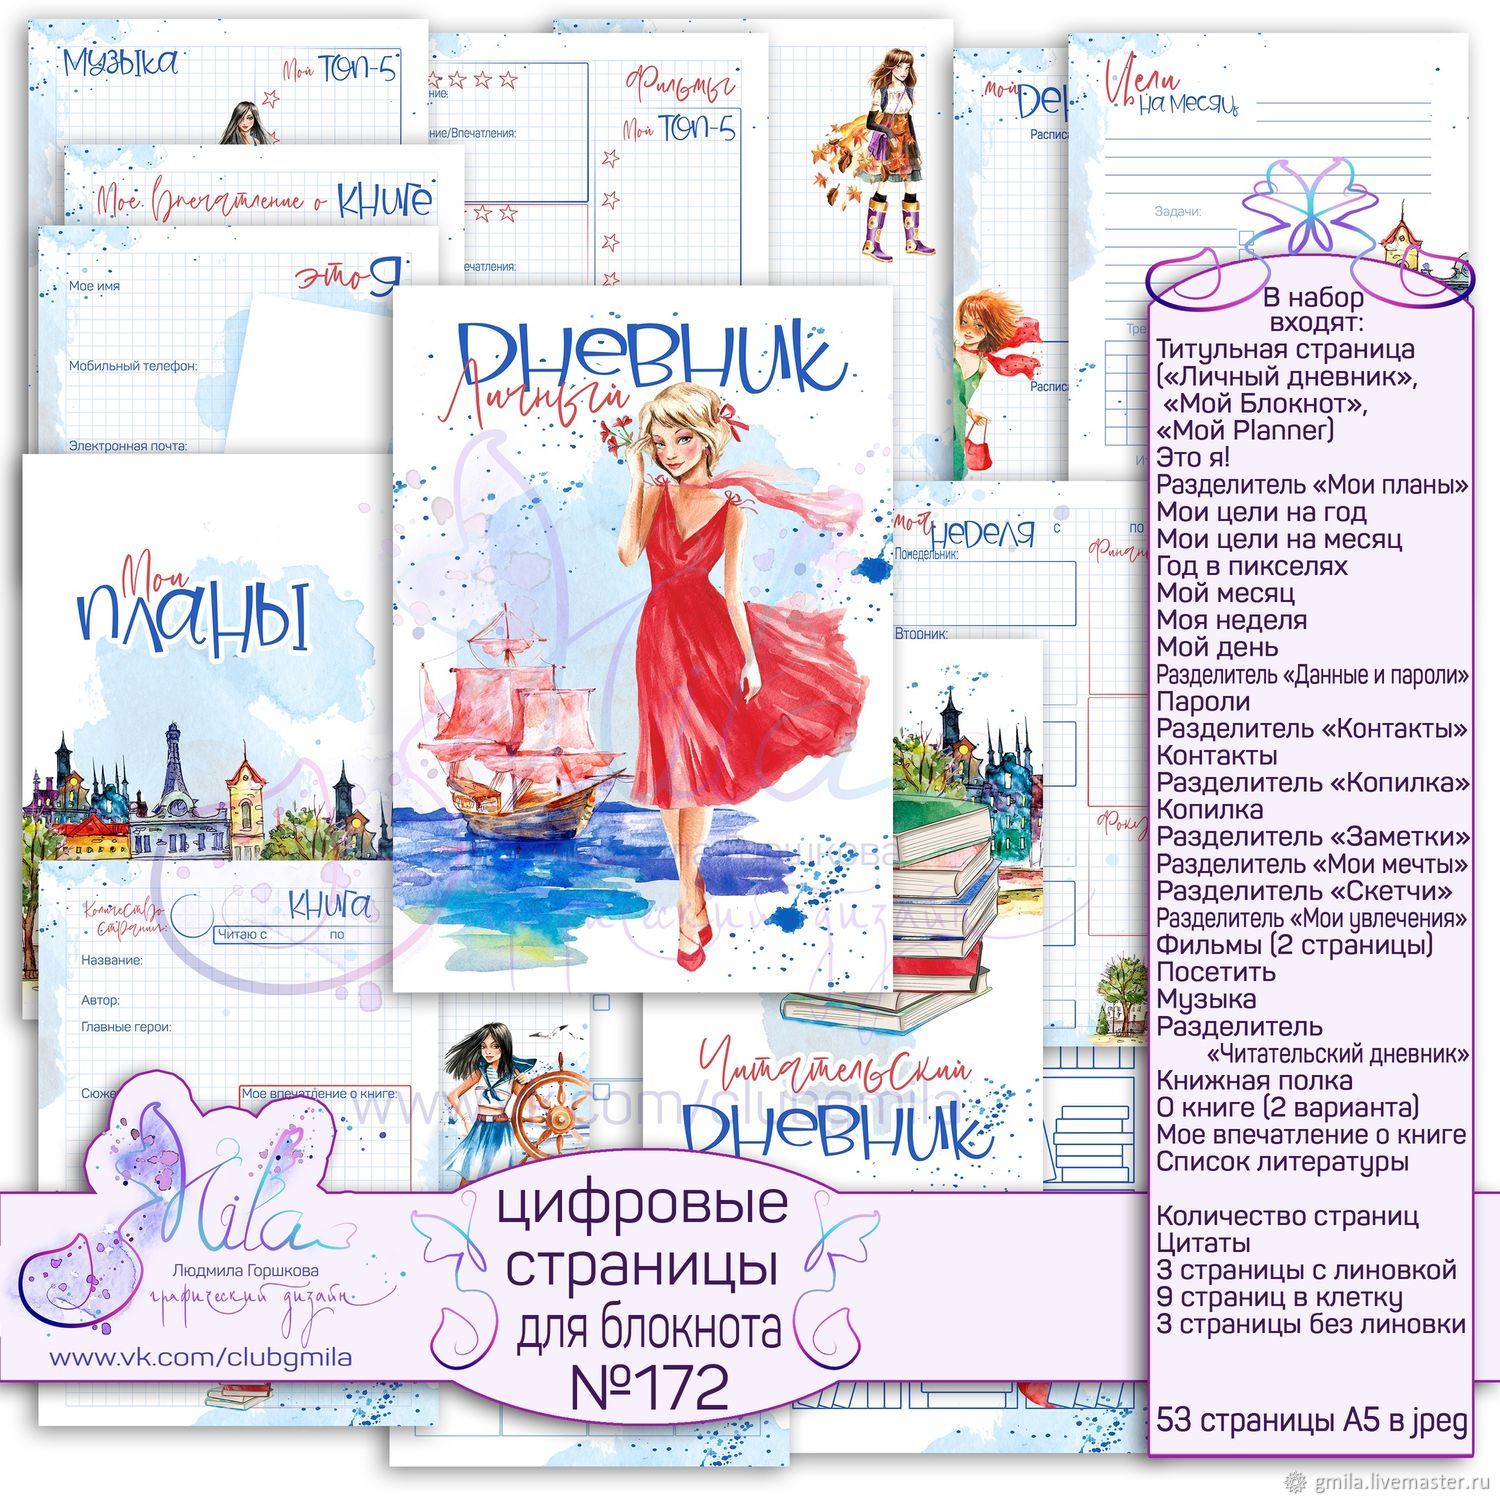 Музыка
Мой ТОП-5
Фильмы
Мой ТОП-5
ние/Впечатления:
печатления:
Мое впечатление о КНИГЕ
это Я
Мое имя
Мобильный телефон:
Электронная почта:
мой
Распис
Распис
Цели
на месяц
Задачи:
Тре
ДНЕВНИК
Личный
Мои
ПЛАНЫ
моя НЕДЕЛЯ с по
Понедельник:
Вторник:
Финан
Фоку
Количество
страниц:
КНИГА
Читаю с по
Название:
Автор:
Главные герои:
Сюже
Мое впечатление о книге:
Читательский
ДНЕВНИК
www.vk.com/clubgmila
В набор
входят:
Титульная страница
(«Личный дневник»,
«Мой Блокнот»,
«Мой Planner)
Это я!
Разделитель «Мои планы»
Мои цели на год
Мои цели на месяц
Год в пикселях
Мой месяц
Моя неделя
Мой день
Разделитель «Данные и пароли»
Пароли
Разделитель «Контакты»
Контакты
Разделитель «Копилка»
Копилка
Разделитель «Заметки»
Разделитель «Мои мечты»
Разделитель «Скетчи»
Разделитель «Мои увлечения»
Фильмы (2 страницы)
Посетить
Музыка
Разделитель
«Читательский дневник»
Книжная полка
О книге (2 варианта)
Мое впечатление о книге
Список литературы
Количество страниц
Цитаты
3 страницы с линовкой
9 страниц в клетку
3 страницы без линовки
53 страницы А5 в jpeg
Mila
Людмила Горшкова
графический дизайн
www.vk.com/clubgmila
цифровые
страницы
для блокнота
№172
gmila.livemaster.ru